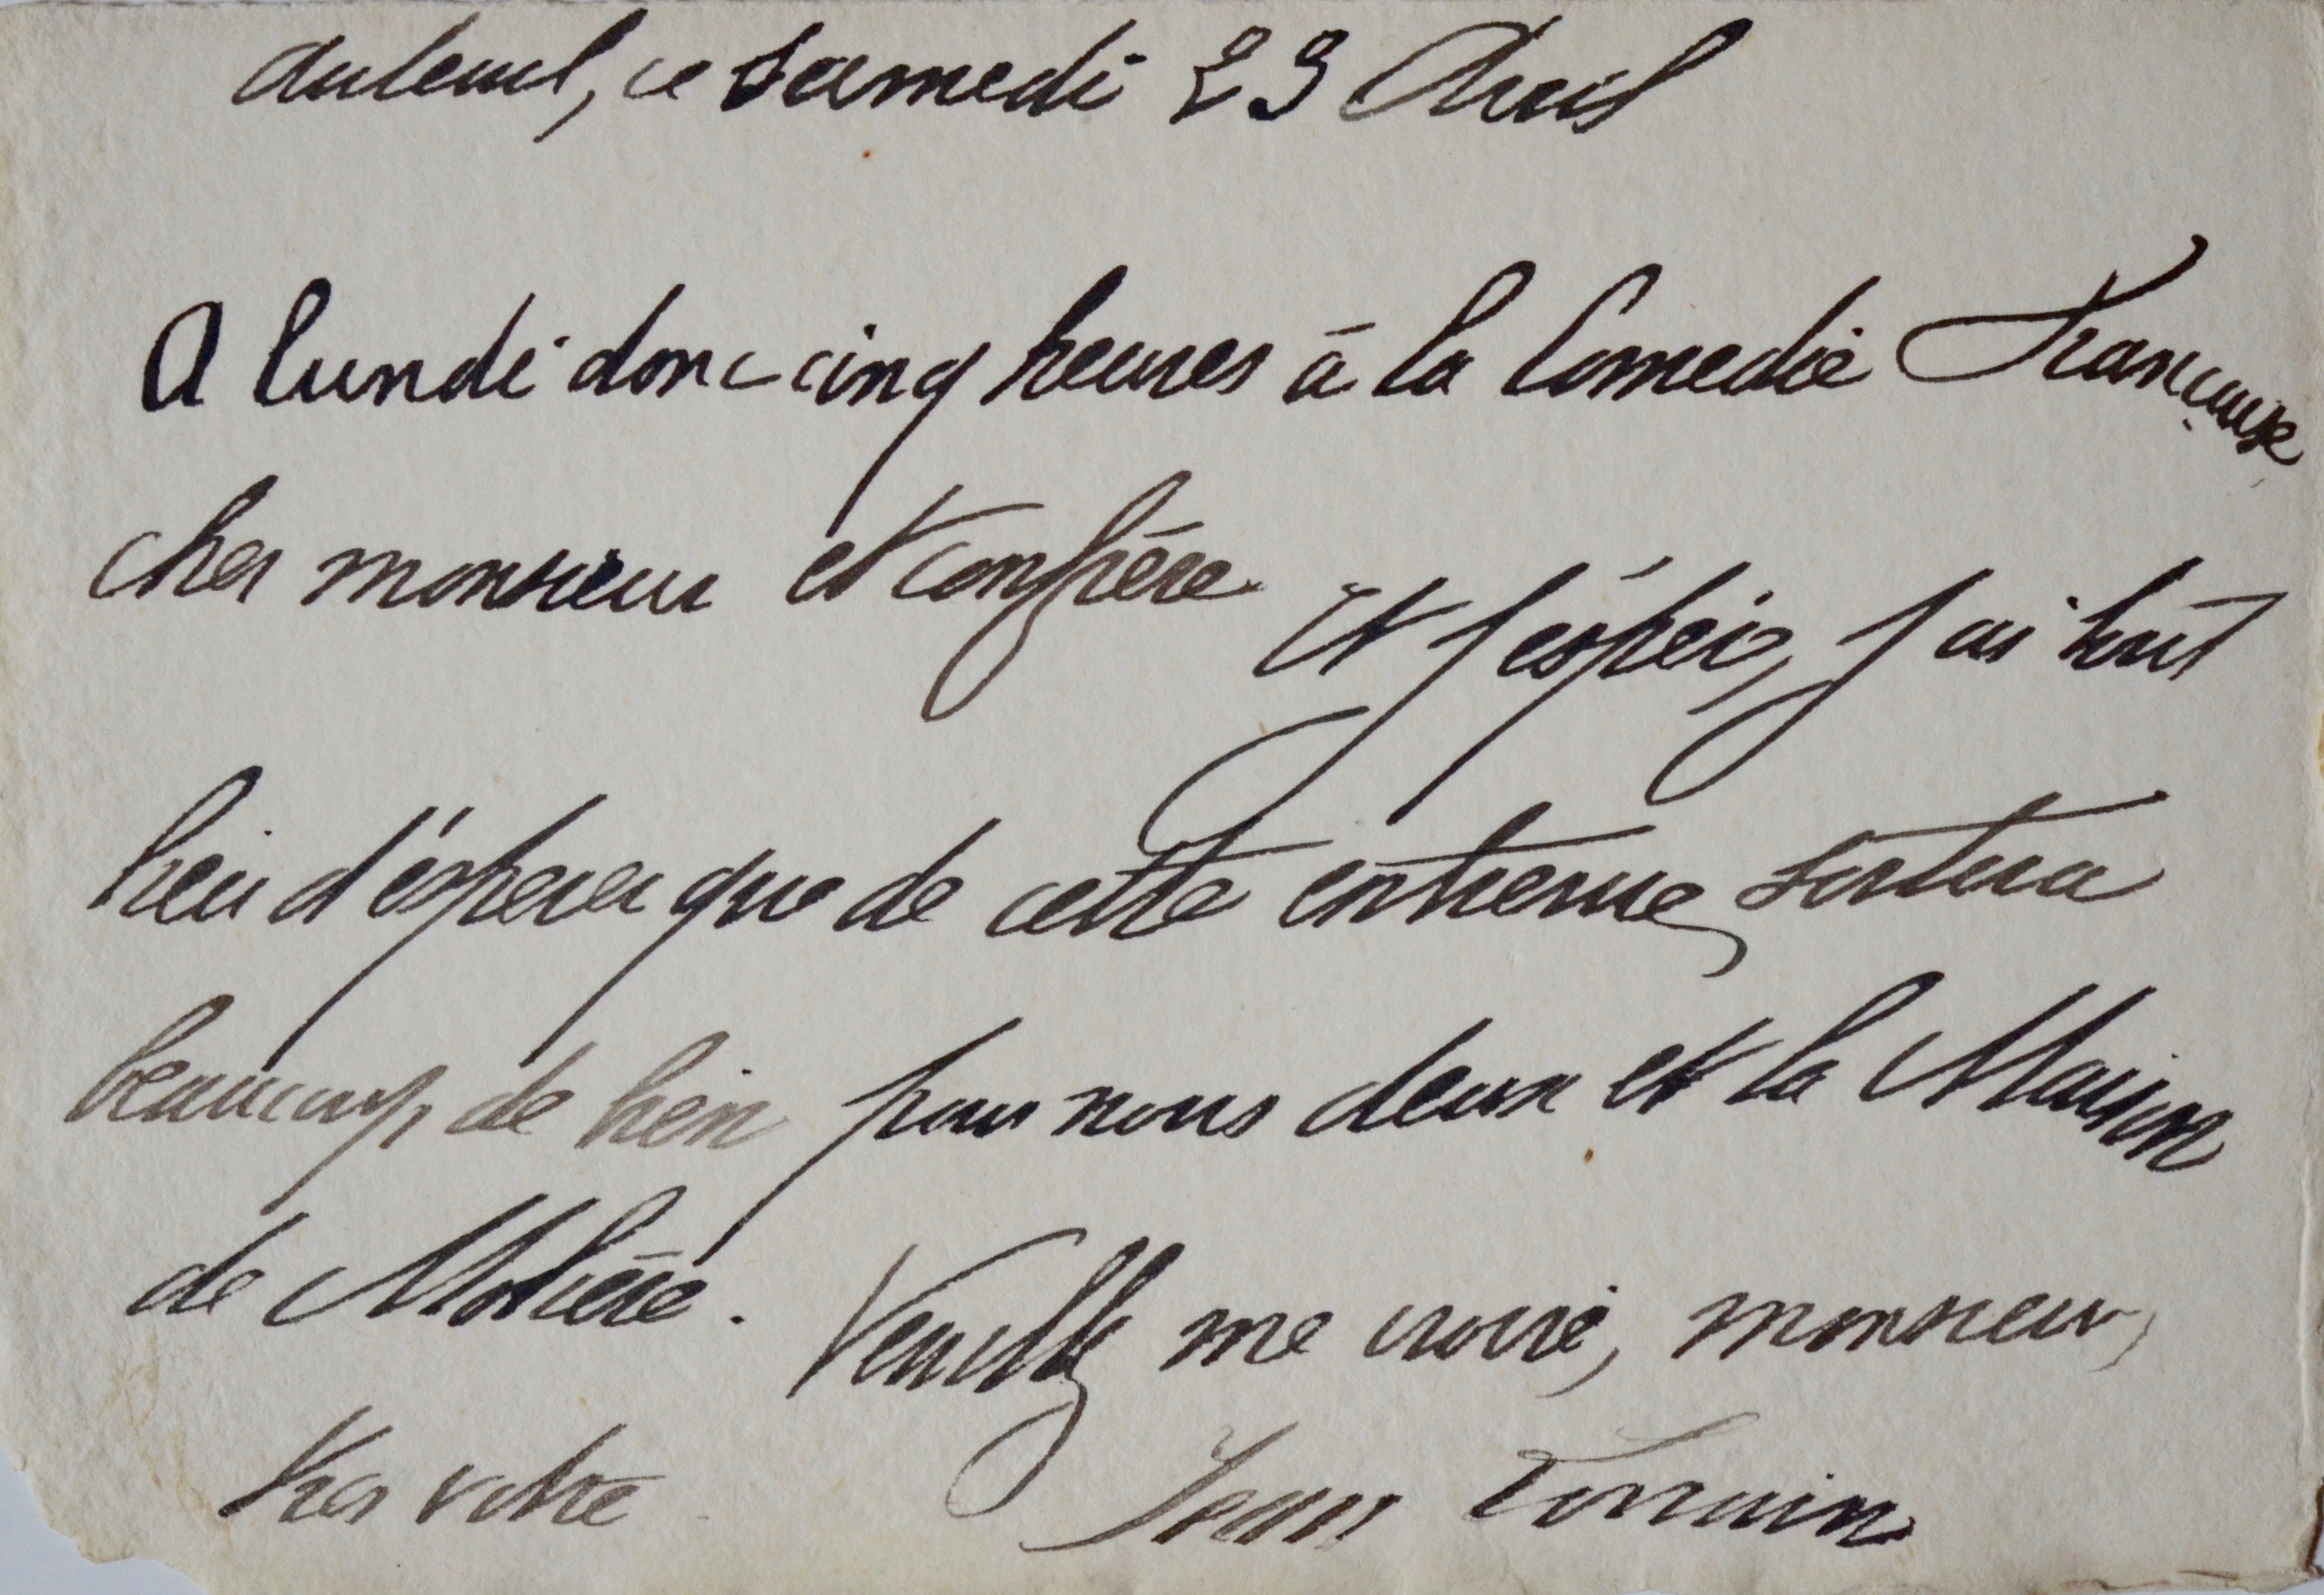 Auteuil, ce samedi 23 Avril
A lundi donc cinq heures à la Comedie Française
cher monsieur et confrère. Et j'espère, j'ai tout
lieu d'esperer que de cette entrevue sortira
beaucoup de bien pour nous deux et la Maison
de Molière. Veuillez me croire, monsieur,
très votre Jean Lorrain